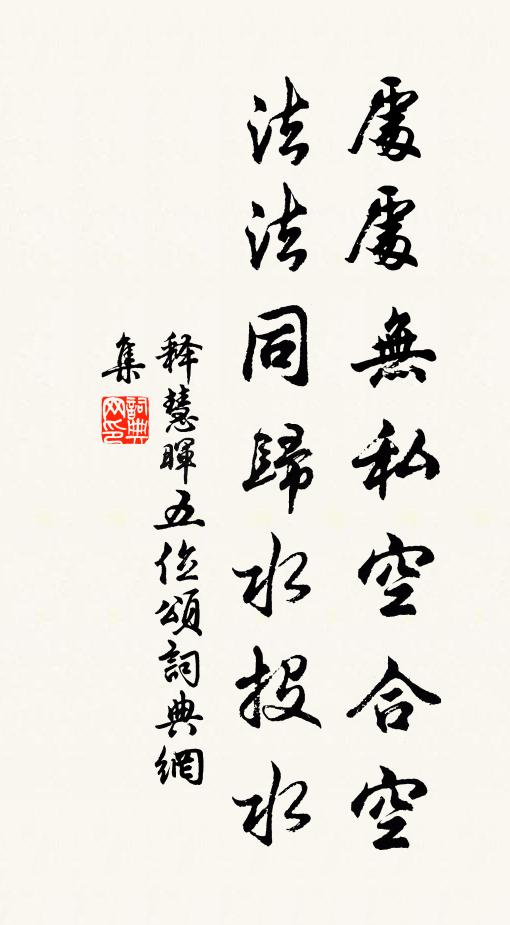 處處無私空合空
法法同歸水投水
释慧暉五位頌詞典網
集
詞典网印